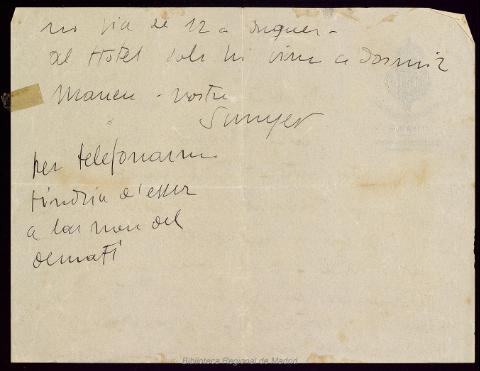 no sia de 12 a
al Hotel sols hi vinc a Dormir
Maneu - vostre
Sunyer
per telefonarme
tindria d'esser
a las nou del
dematí
Biblioteca Regional de Madrid